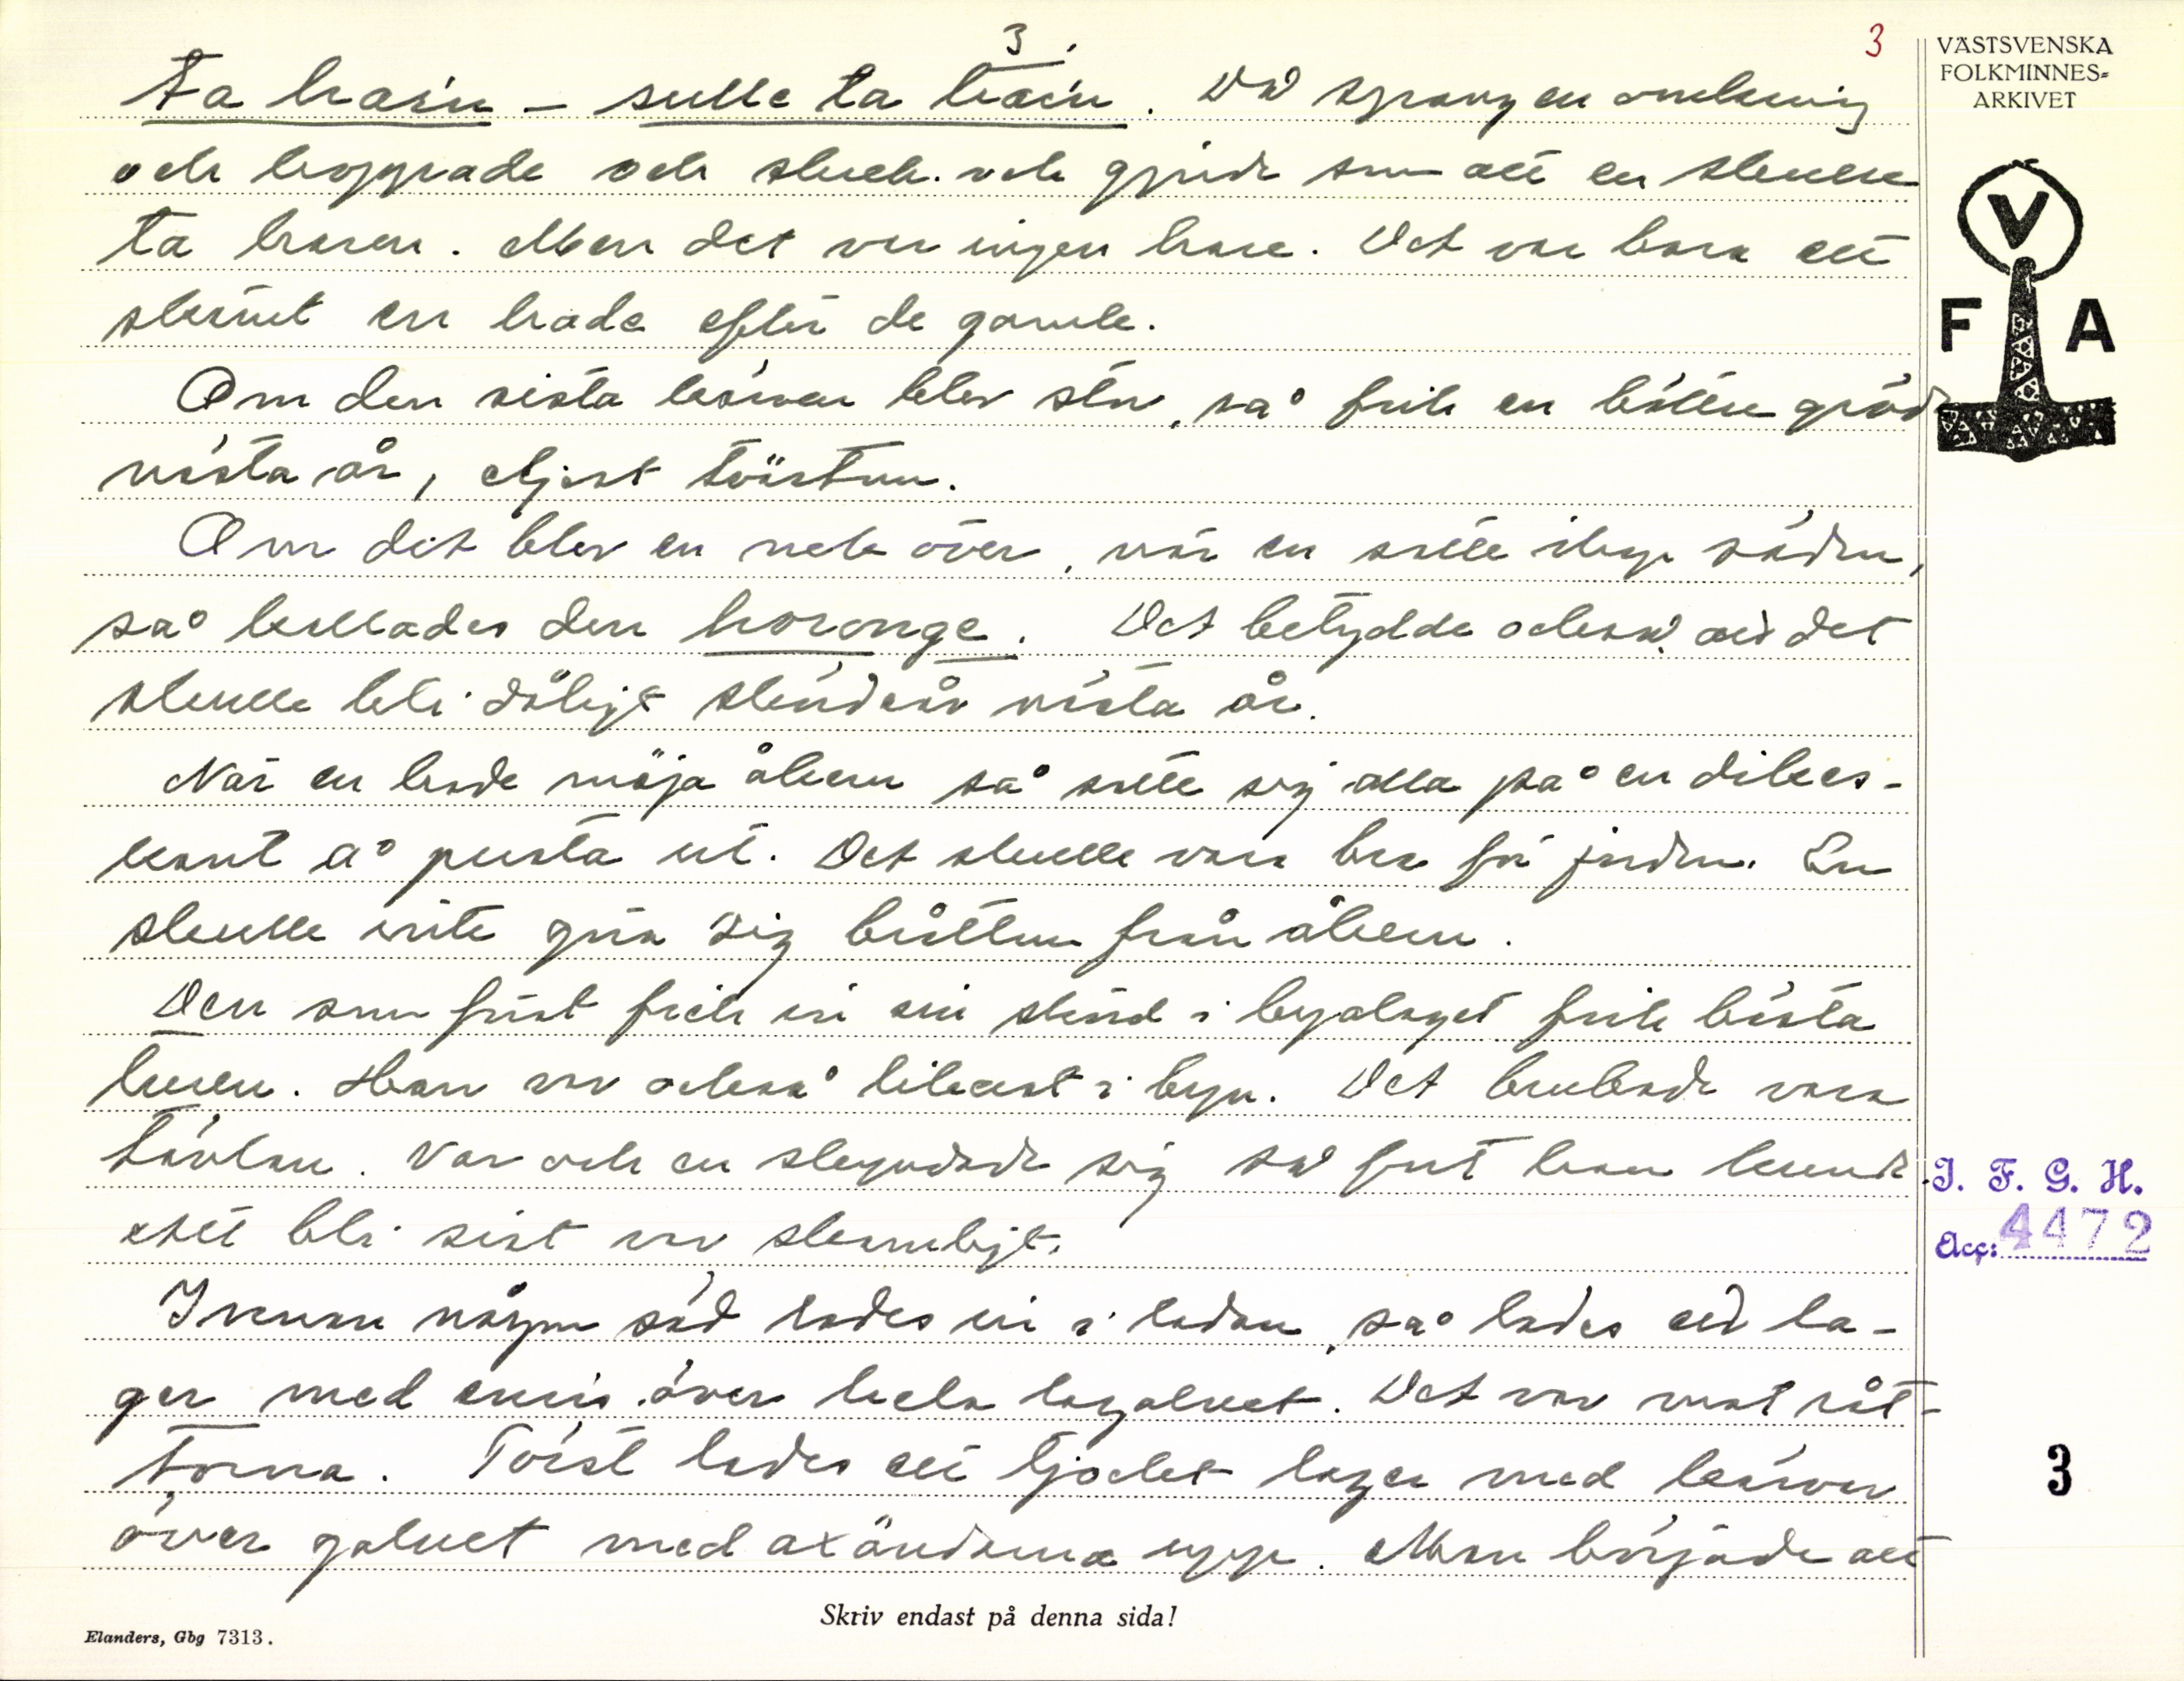 3
3
VÄSTSVENSKA
FOLKMINNES=
ARKIVET
ta hasin – sulle ta hasin. Då sprang en omkring
och hoppade och skrek och gjorde som att en skulle
ta haren. Men det var ingen hare. Det var bara ett
skämt en hade efter de gamle.
V
F A
Om den sista kärven blev stor, så fick en bättre gröda
nästa år, eljest tvärtom.
Om det blev en nek över, när en satte ihop säden,
så kallades den horonge. Det betydde också att det
skulle bli dåligt skördeår nästa år.
När en hade möja åkern så satte sig alla på en dikes-
kant å pusta ut. Det skulle vara bra för jorden. En
skulle inte göra sig bråttom från åkern.
Den som först fick in sin skörd i byalaget fick bästa
lusen. Han var också likast i byn. Det brukade vara
tävlan. Var och en skyndade sig så fort han kunde
att bli sist var skamligt.
I. F. G. H.
Acc: 4472
Innan någon säd lades in i ladan, så lades ett la-
ger med enris över hela logolvet. Det var mot råt-
torna. Först lades ett tjockt lager med kärvar
över golvet med axändarna upp. Man började att
3
Skriv endast på denna sida!
Elanders, Gbg 7313.